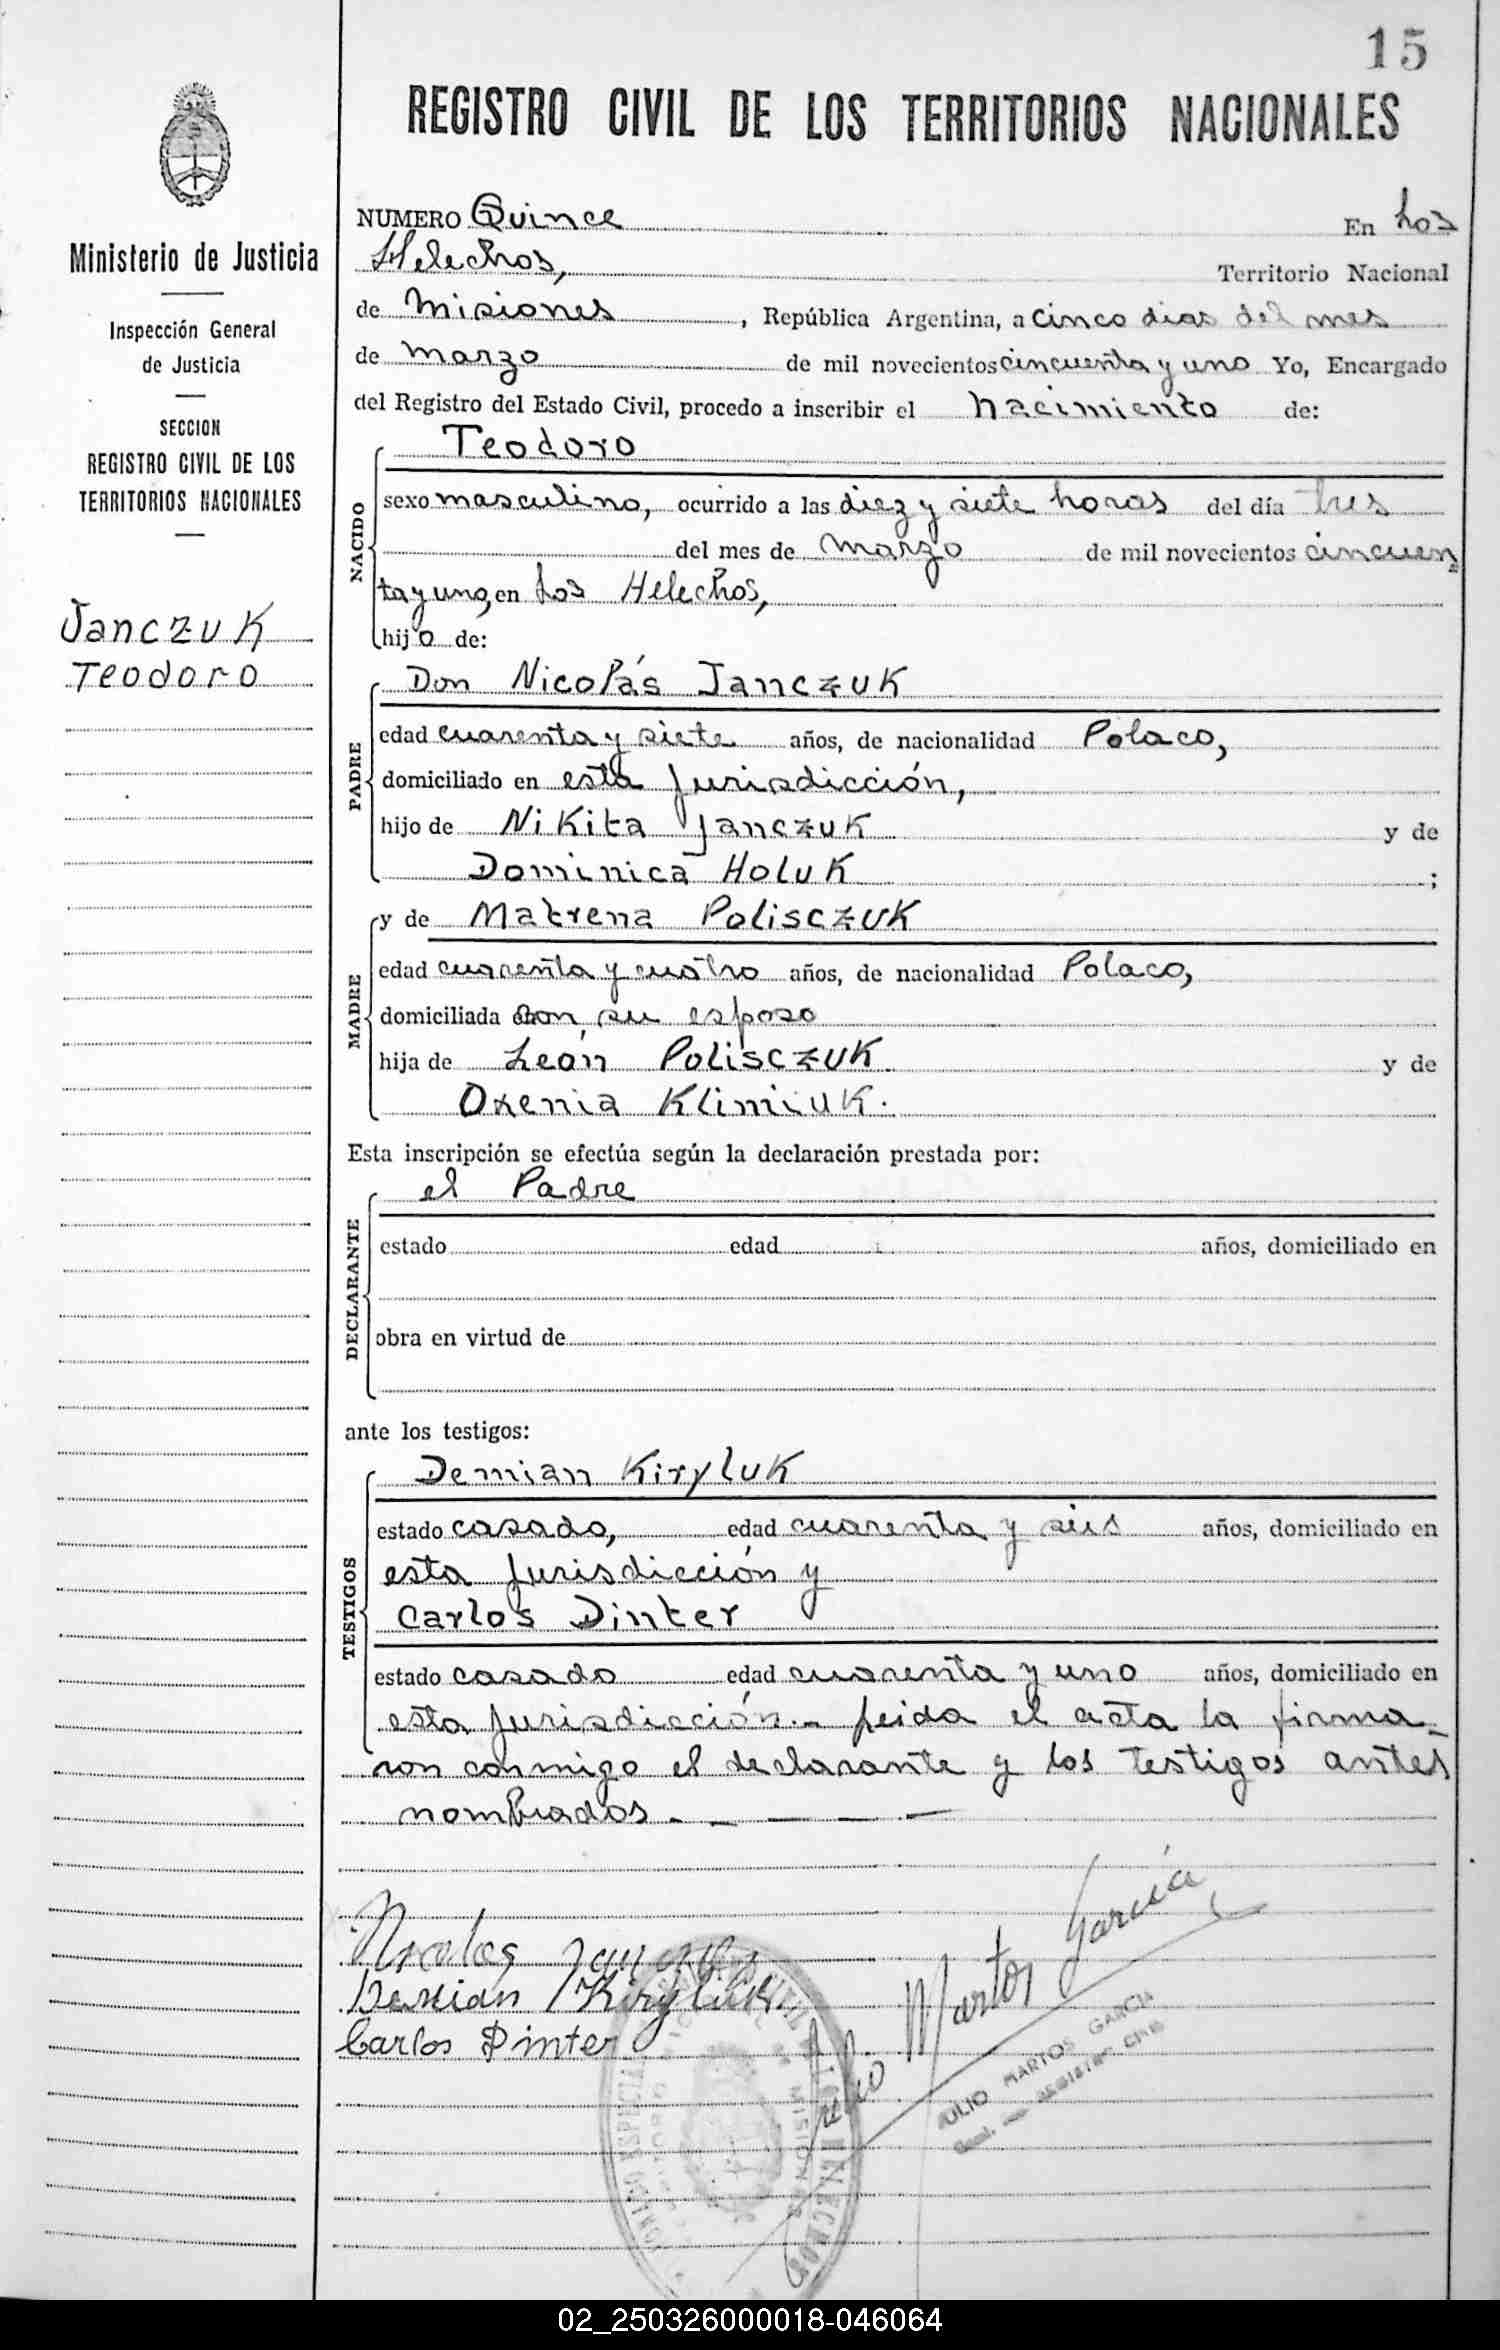 15
REGISTRO CIVIL DE LOS TERRITORIOS NACIONALES
Ministerio de Justicia
Inspección General
de Justicia
SECCION
REGISTRO CIVIL DE LOS
TERRITORIOS NACIONALES
Janczuk
Teodoro
NUMERO Quince En Los
Helechos, Territorio Nacional
de Misiones, República Argentina, a cinco dias del mes
de Marzo de mil novecientos cincuenta y uno Yo, Encargado
del Registro del Estado Civil, procedo a inscribir el Nacimiento de:
NACIDO
Teodoro
sexo masculino, ocurrido a las diez y siete horas del día tres
del mes de Marzo de mil novecientos cincuen
ta y uno, en Los Helechos,
hijo de:
PADRE
Don Nicolás Janczuk
edad cuarenta y siete años, de nacionalidad Polaco,
domiciliado en esta Jurisdicción,
hijo de Nikita Janczuk y de
Dominica Holuk ;
MADRE
y de Matrena Polisczuk
edad cuarenta y cuatro años, de nacionalidad Polaco,
domiciliada con su esposo
hija de León Polisczuk y de
Oxenia Klimiuk.
Esta inscripción se efectúa según la declaración prestada por:
DECLARANTE
el Padre
estado edad años, domiciliado en
obra en virtud de
ante los testigos:
TESTIGOS
Demian Kiryluk
estado casado, edad cuarenta y seis años, domiciliado en
esta Jurisdicción y
Carlos Dinter
estado casado edad cuarenta y uno años, domiciliado en
esta Jurisdicción.- Leida el acta la firma-
ron conmigo el declarante y los testigos antes
nombrados - - - -
Nicolas
Demian Kiryluk
Carlos Dinter
Julio Martos García
JULIO MARTOS GARCIA
REGISTRO CIVIL
02_250326000018-046064